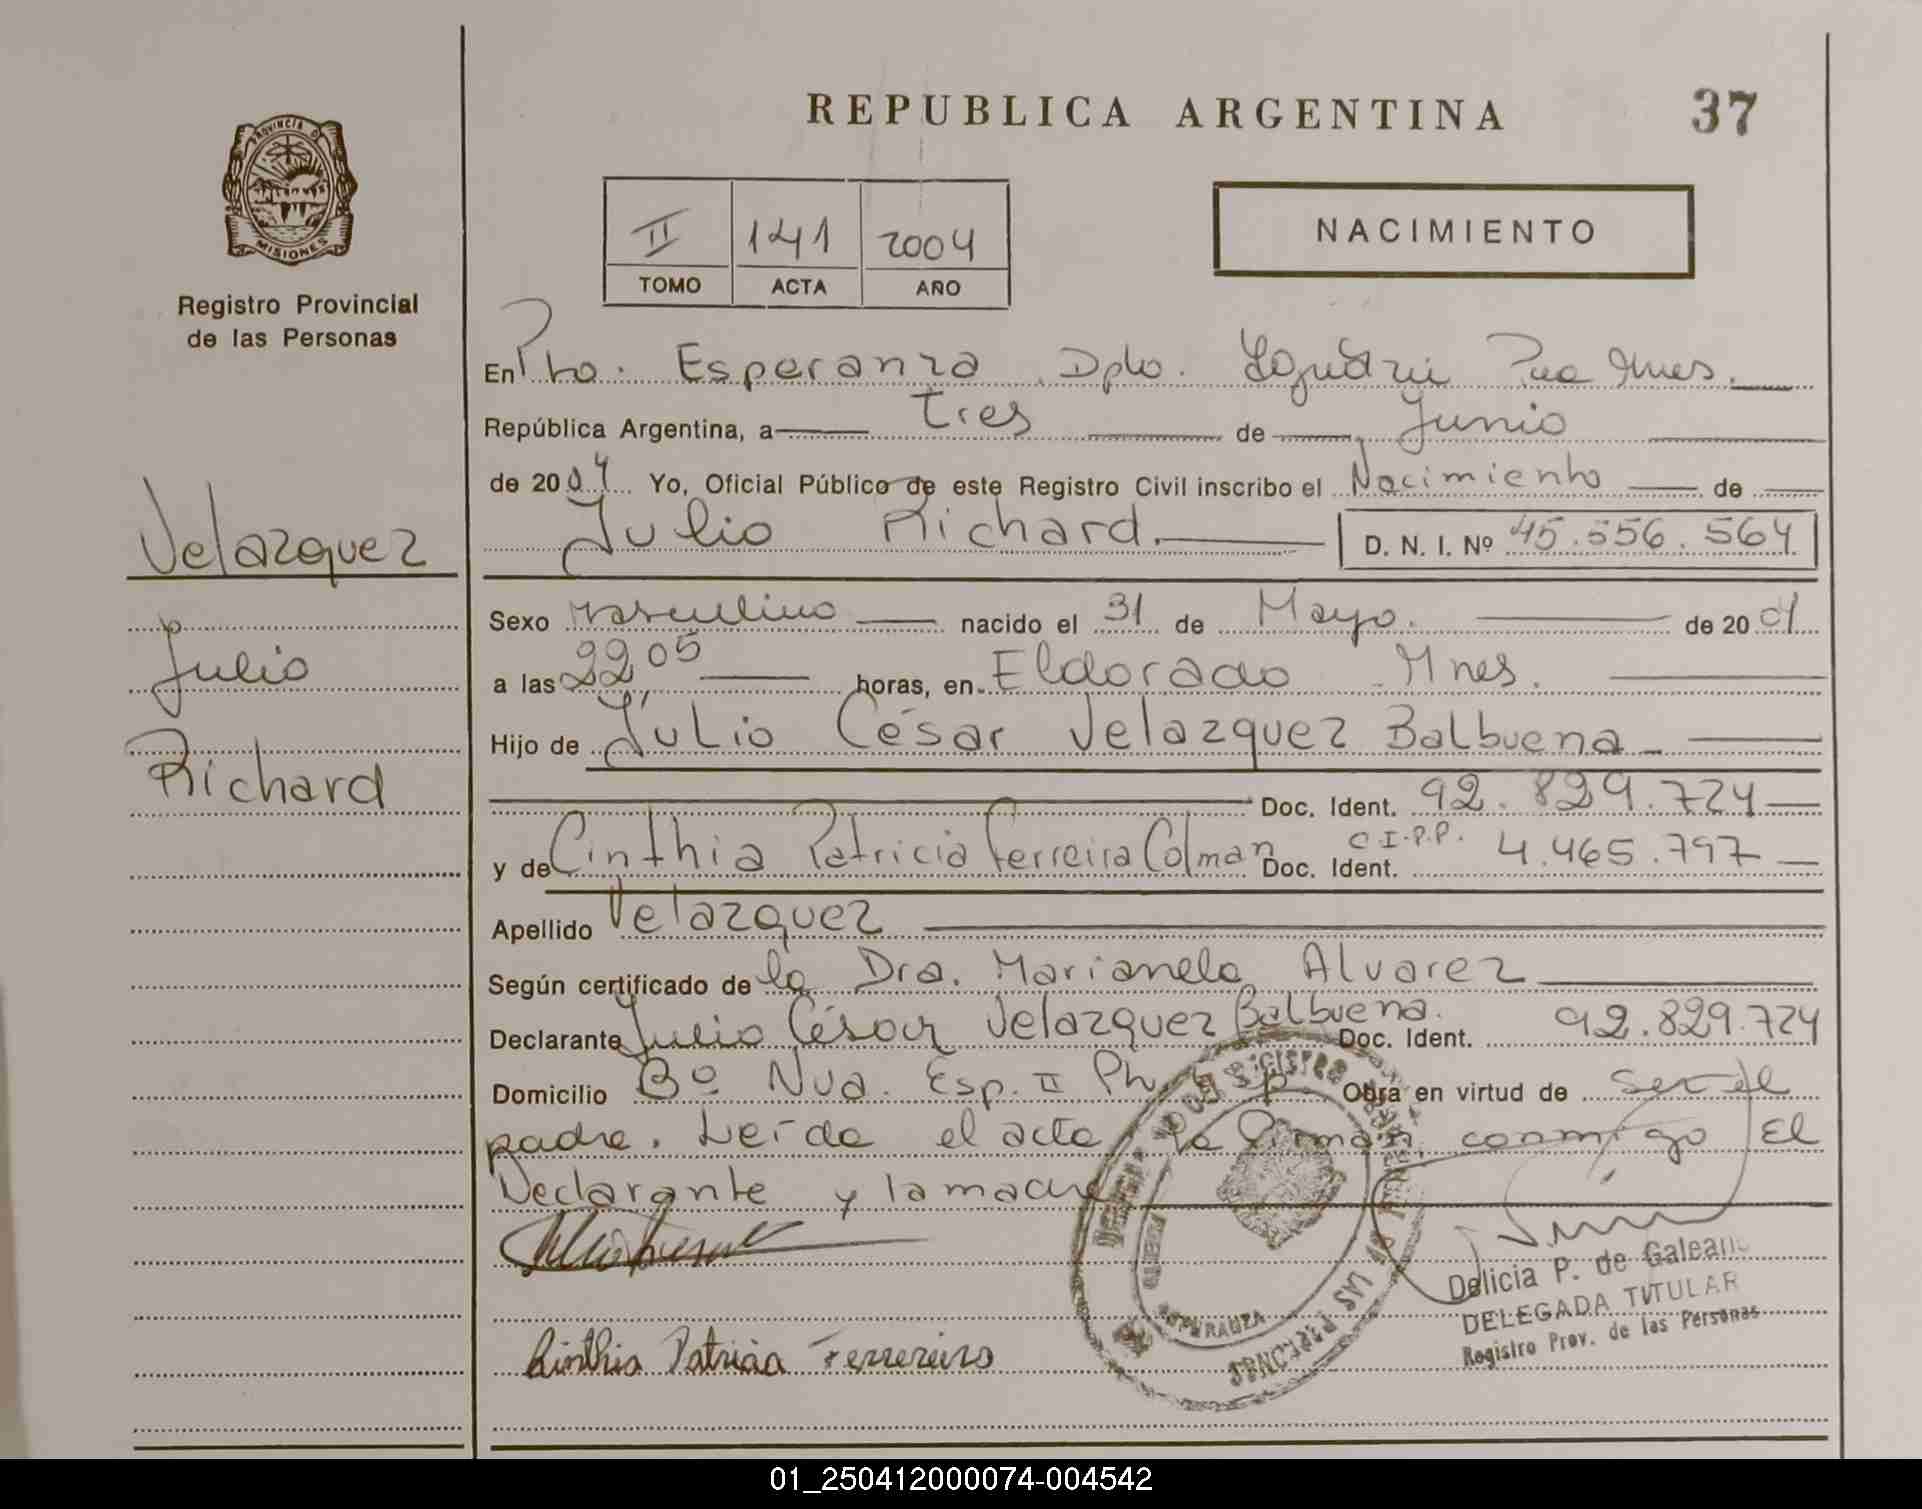 REPUBLICA ARGENTINA
37
PROVINCIA D
MISIONES
Registro Provincial
de las Personas
II 141 2004
TOMO ACTA AÑO
NACIMIENTO
En Pto. Esperanza Dpto. Iguazú Pcia Mnes.
República Argentina, a tres de Junio
de 2004 Yo, Oficial Público de este Registro Civil inscribo el Nacimiento de
Julio Richard. D. N. I. Nº 45.556.564
Velazquez
Julio
Richard
Sexo Masculino nacido el 31 de Mayo. de 2004
a las 22,05 horas, en Eldorado Mnes.
Hijo de Julio César Velazquez Balbuena
Doc. Ident. 92.829.724
y de Cinthia Patricia Ferreira Colman Doc. Ident. C.I.P.P. 4.465.797
Apellido Velazquez
Según certificado de la Dra. Marianela Alvarez
Declarante Julio César Velazquez Balbuena. Doc. Ident. 92.829.724
Domicilio Bº Nva. Esp. II Pto. Esp Obra en virtud de ser el
padre. Leída el acta la firman conmigo El
Declarante y la madre
Cinthia Patricia Ferrereira
DE LAS PERSONAS
ESPERANZA
Delicia P. de Galeano
DELEGADA TITULAR
Registro Prov. de las Personas
01_250412000074-004542